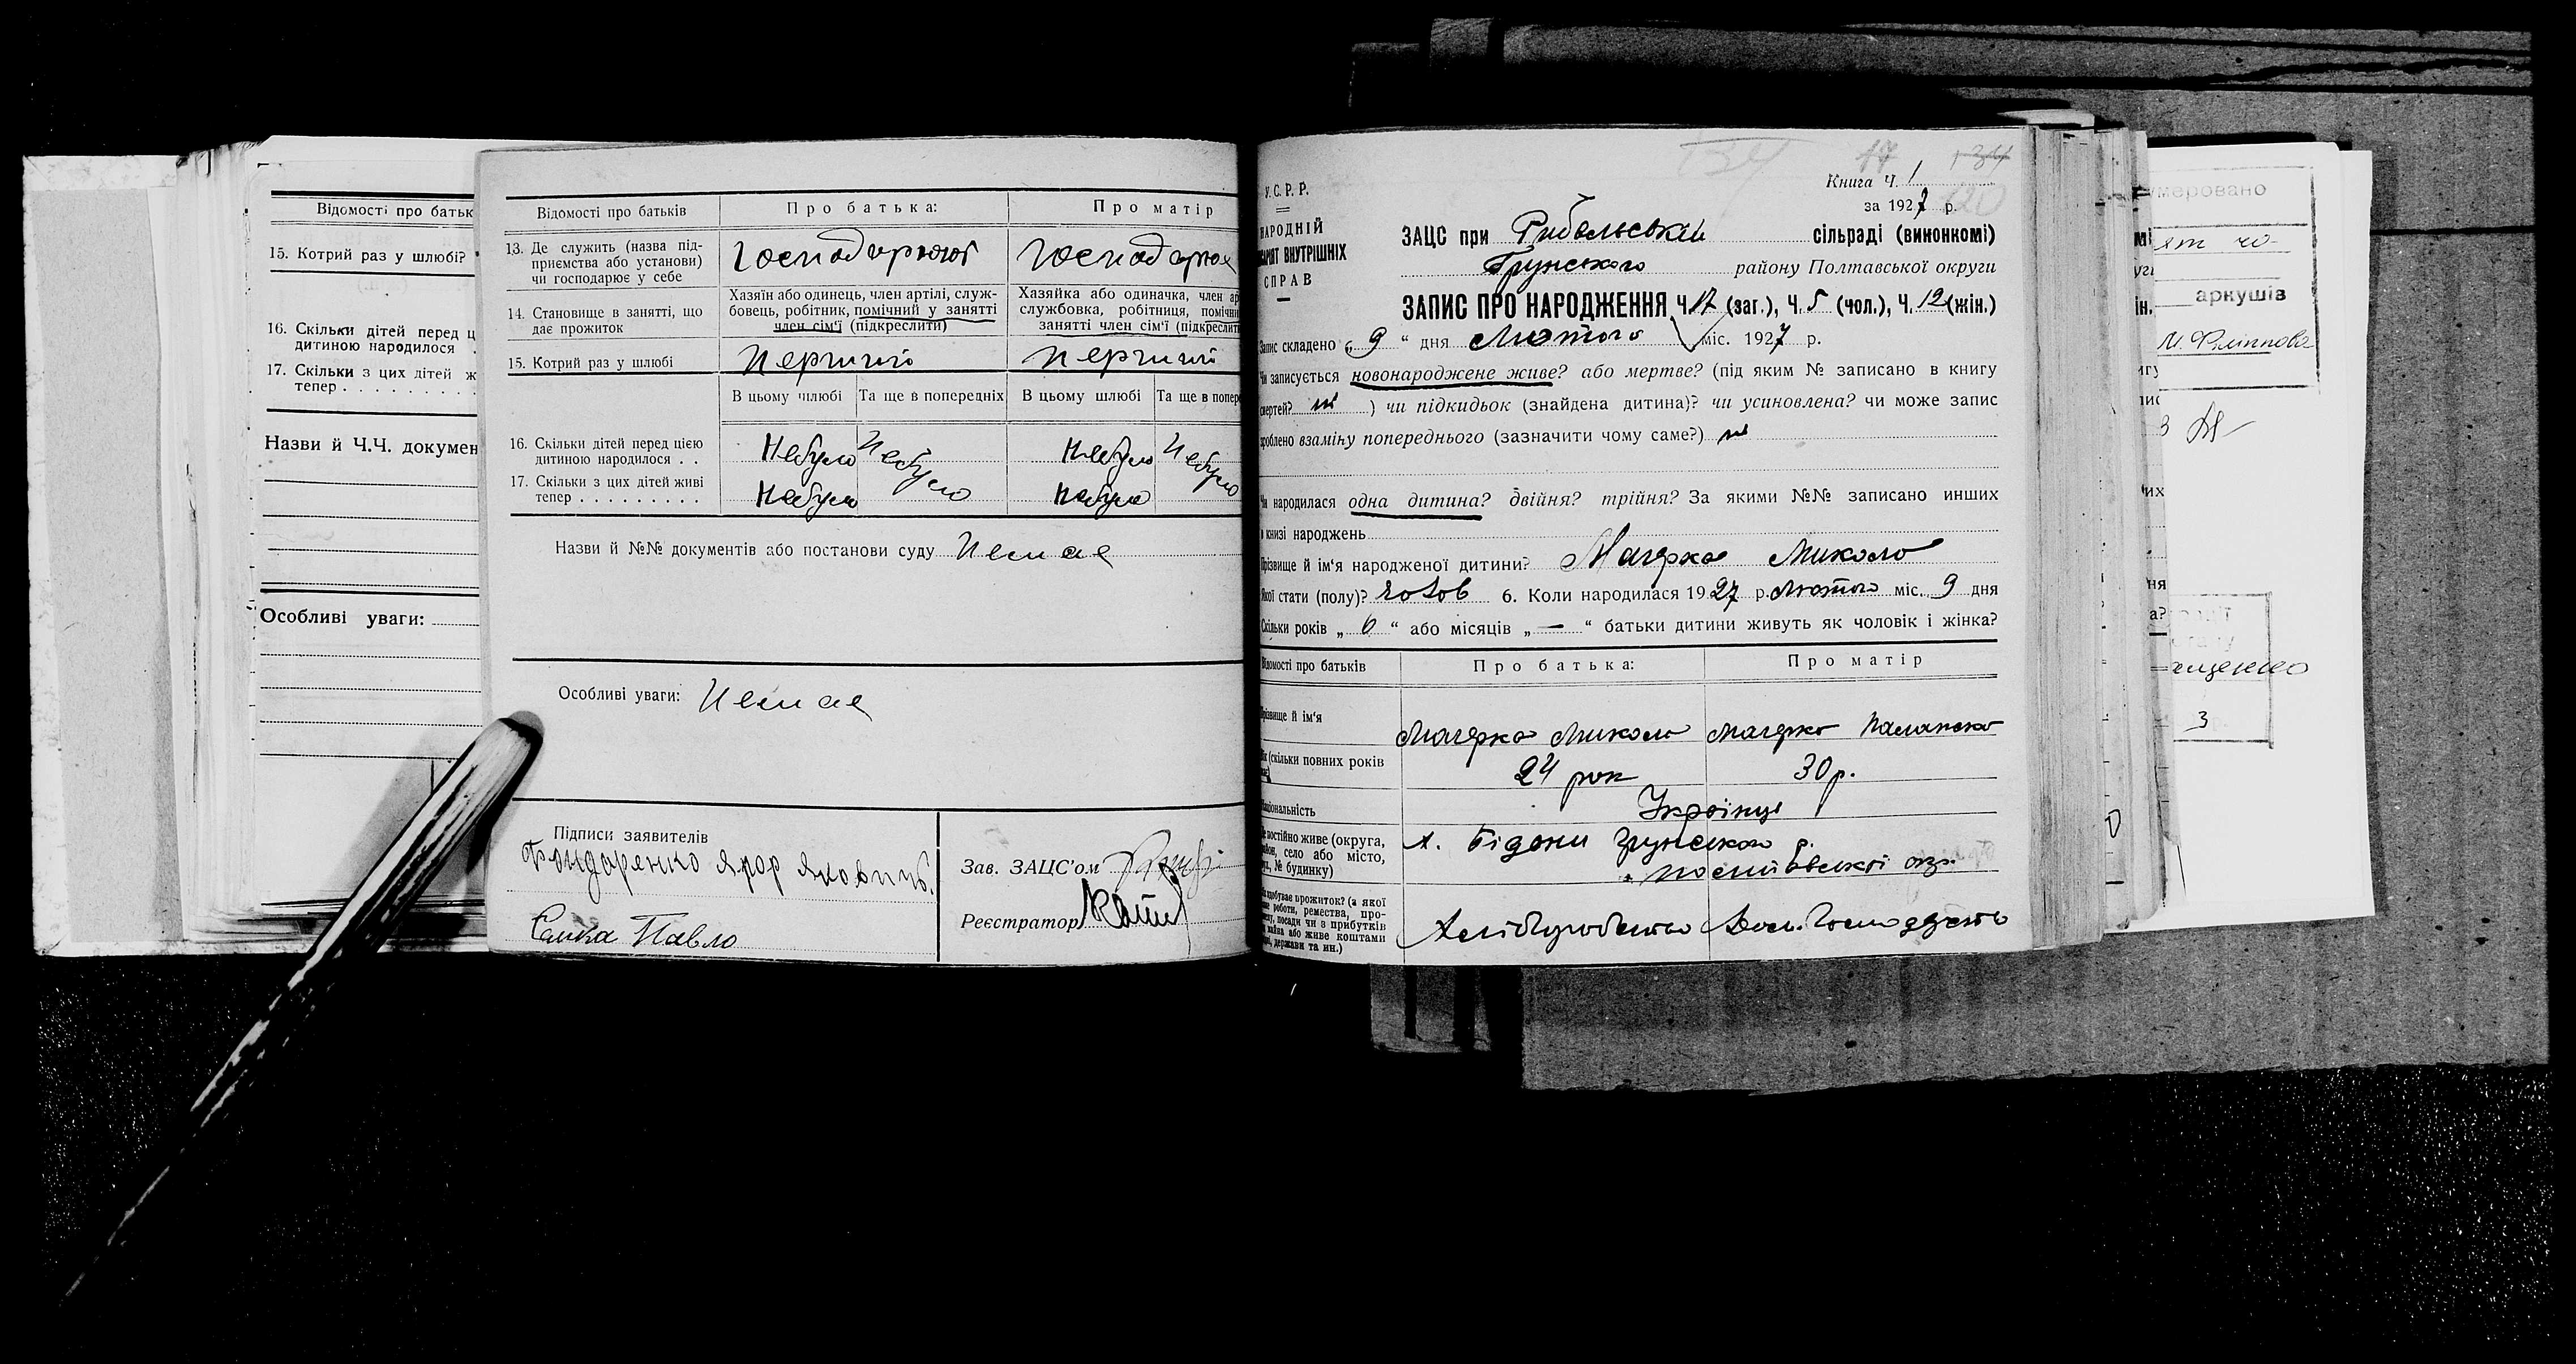 Відомості про батьк
15. Котрий раз у шлюбі?
16. Скільки дітей перед ц
дитиною народилося
17. Скільки з цих дітей ж
тепер . . . . . . . .
Назви й Ч.Ч. докумен
Особливі уваги:
Відомості про батьків Про батька: Про матір
13. Де служить (назва під-
приємства або установи)
чи господарює у себе
Господарюют Господарює
14. Становище в занятті, що
дає прожиток
Хазяїн або одинець, член артілі, служ-
бовець, робітник, помічний у занятті
член сім'ї (підкреслити)
Хазяйка або одиначка, член ар
службовка, робітниця, помічни
занятті член сім'ї (підкреслити
15. Котрий раз у шлюбі Перший Перший
В цьому шлюбі Та ще в попередніх В цьому шлюбі Та ще в попере
16. Скільки дітей перед цією
дитиною народилося . .
Небуло Небуло Небуло Небуло
17. Скільки з цих дітей живі
тепер . . . . . . . . .
Небуло Небуло
Назви й №№ документів або постанови суду Немає
Особливі уваги: Немає
Підписи заявителів
Бондаренко
Павло
Зав. ЗАЦС'ом
Реєстратор
17 134
У.С.Р.Р.
НАРОДНІЙ
КОМІСАРІЯТ ВНУТРІШНІХ
СПРАВ
Книга Ч. 1
за 1927 р.
ЗАЦС при Рибальській сільраді (виконкомі)
Грунського району Полтавської округи
ЗАПИС ПРО НАРОДЖЕННЯ Ч. 17 (заг.), Ч. 5 (чол.), Ч. 12 (жін.)
Запис складено „ 9 “ дня Лютого міс. 1927 р.
Чи записується новонароджене живе? або мертве? (під яким № записано в книгу
смертей? ні ) чи підкидьок (знайдена дитина)? чи усиновлена? чи може запис
зроблено взаміну попереднього (зазначити чому саме?) ні
Чи народилася одна дитина? двійня? трійня? За якими №№ записано инших
в книзі народжень
Прізвище й ім'я народженої дитини? Магерка Микола
Якої стати (полу)? чолов 6. Коли народилася 1927 р. Лютого міс. 9 дня
Скільки років „ 6 “ або місяців „ — “ батьки дитини живуть як чоловік і жінка?
Відомості про батьків Про батька: Про матір
Прізвище й ім'я
Магерка Микола Магерка
Вік (скільки повних років
24 рок 30 р.
Національність Українці
Де постійно живе (округа,
район, село або місто,
вул., № будинку)
х. Грунського р.
Полтавської окр.
прожиток? (а якої
роботи, ремества, про-
посади чи з прибутків
майна або живе коштами
держави та ин.)
Хліборобство Дом. Господарств
умеровано
аркушів
3
3